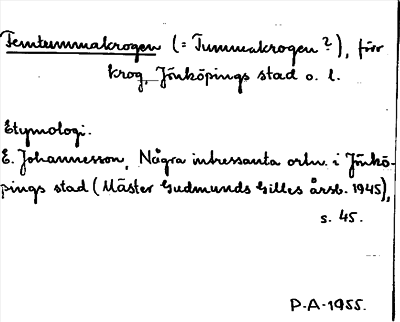 Femtummakrogen (= Tummakrogen?), förr
krog, Jönköpings stad o. l.
Etymologi.
E. Johannesson, Några intressanta ortn. i Jönkö-
pings stad (Mäster Gudmunds Gilles årsb. 1945),
s. 45.
P.A. 1955.